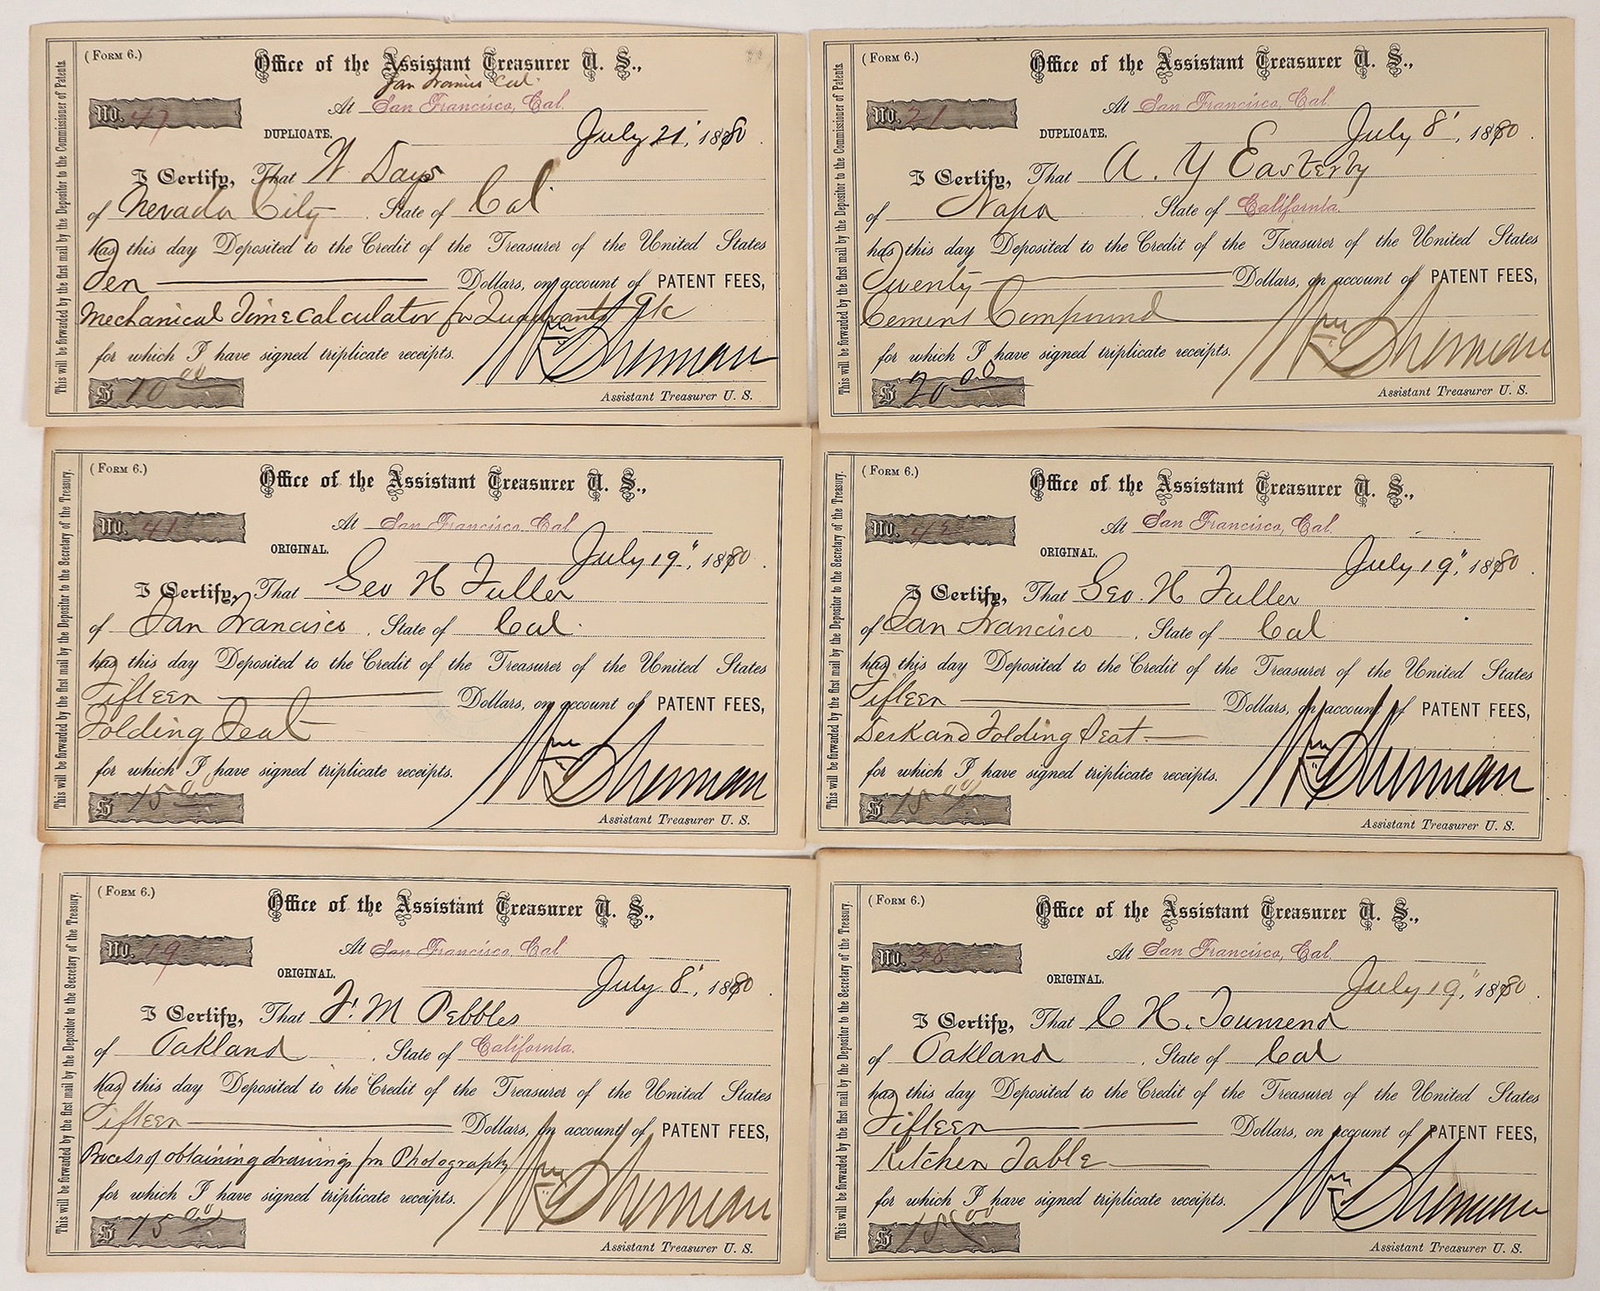 This will be forwarded by the first mail by the Depositor to the Commissioner of Patents.
(FORM 6.)
Office of the Assistant Treasurer U. S.,
San Francisco Cal
No. 47
At San Francisco, Cal.
DUPLICATE.
July 21, 1880.
I Certify, That W Days
of Nevada City, State of Cal
has this day Deposited to the Credit of the Treasurer of the United States
Ten Dollars, on account of PATENT FEES,
Mechanical Time calculator for &c
for which I have signed triplicate receipts.
Wm Sherman
$ 10 00
Assistant Treasurer U. S.
This will be forwarded by the first mail by the Depositor to the Commissioner of Patents.
(FORM 6.)
Office of the Assistant Treasurer U. S.,
No. 21
At San Francisco, Cal.
DUPLICATE.
July 8, 1880.
I Certify, That A. Y Easterby
of Napa, State of California.
has this day Deposited to the Credit of the Treasurer of the United States
Twenty Dollars, on account of PATENT FEES,
Cement Compound
for which I have signed triplicate receipts.
Wm Sherman
$ 20 00
Assistant Treasurer U. S.
This will be forwarded by the first mail by the Depositor to the Secretary of the Treasury.
(FORM 6.)
Office of the Assistant Treasurer U. S.,
No. 41
At San Francisco, Cal.
ORIGINAL.
July 19", 1880.
I Certify, That Geo H Fuller
of San Francisco, State of Cal.
has this day Deposited to the Credit of the Treasurer of the United States
Fifteen Dollars, on account of PATENT FEES,
Folding Seat
for which I have signed triplicate receipts.
Wm Sherman
$ 15 00
Assistant Treasurer U. S.
This will be forwarded by the first mail by the Depositor to the Secretary of the Treasury.
(FORM 6.)
Office of the Assistant Treasurer U. S.,
No. 42
At San Francisco, Cal.
ORIGINAL.
July 19", 1880.
I Certify, That Geo. H Fuller
of San Francisco, State of Cal
has this day Deposited to the Credit of the Treasurer of the United States
Fifteen Dollars, on account of PATENT FEES,
Desk and Folding Seat
for which I have signed triplicate receipts.
Wm Sherman
$ 15 00
Assistant Treasurer U. S.
This will be forwarded by the first mail by the Depositor to the Secretary of the Treasury.
(FORM 6.)
Office of the Assistant Treasurer U. S.,
No. 19
At San Francisco, Cal
ORIGINAL.
July 8, 1880.
I Certify, That F. M Pebbles
of Oakland, State of California.
has this day Deposited to the Credit of the Treasurer of the United States
Fifteen Dollars, on account of PATENT FEES,
Process of obtaining drawings for Photography
for which I have signed triplicate receipts.
Wm Sherman
$ 15 00
Assistant Treasurer U. S.
This will be forwarded by the first mail by the Depositor to the Secretary of the Treasury.
(FORM 6.)
Office of the Assistant Treasurer U. S.,
No. 38
At San Francisco, Cal.
ORIGINAL.
July 19", 1880.
I Certify, That C H. Townsend
of Oakland, State of Cal
has this day Deposited to the Credit of the Treasurer of the United States
Fifteen Dollars, on account of PATENT FEES,
Kitchen Table
for which I have signed triplicate receipts.
Wm Sherman
$ 15 00
Assistant Treasurer U. S.